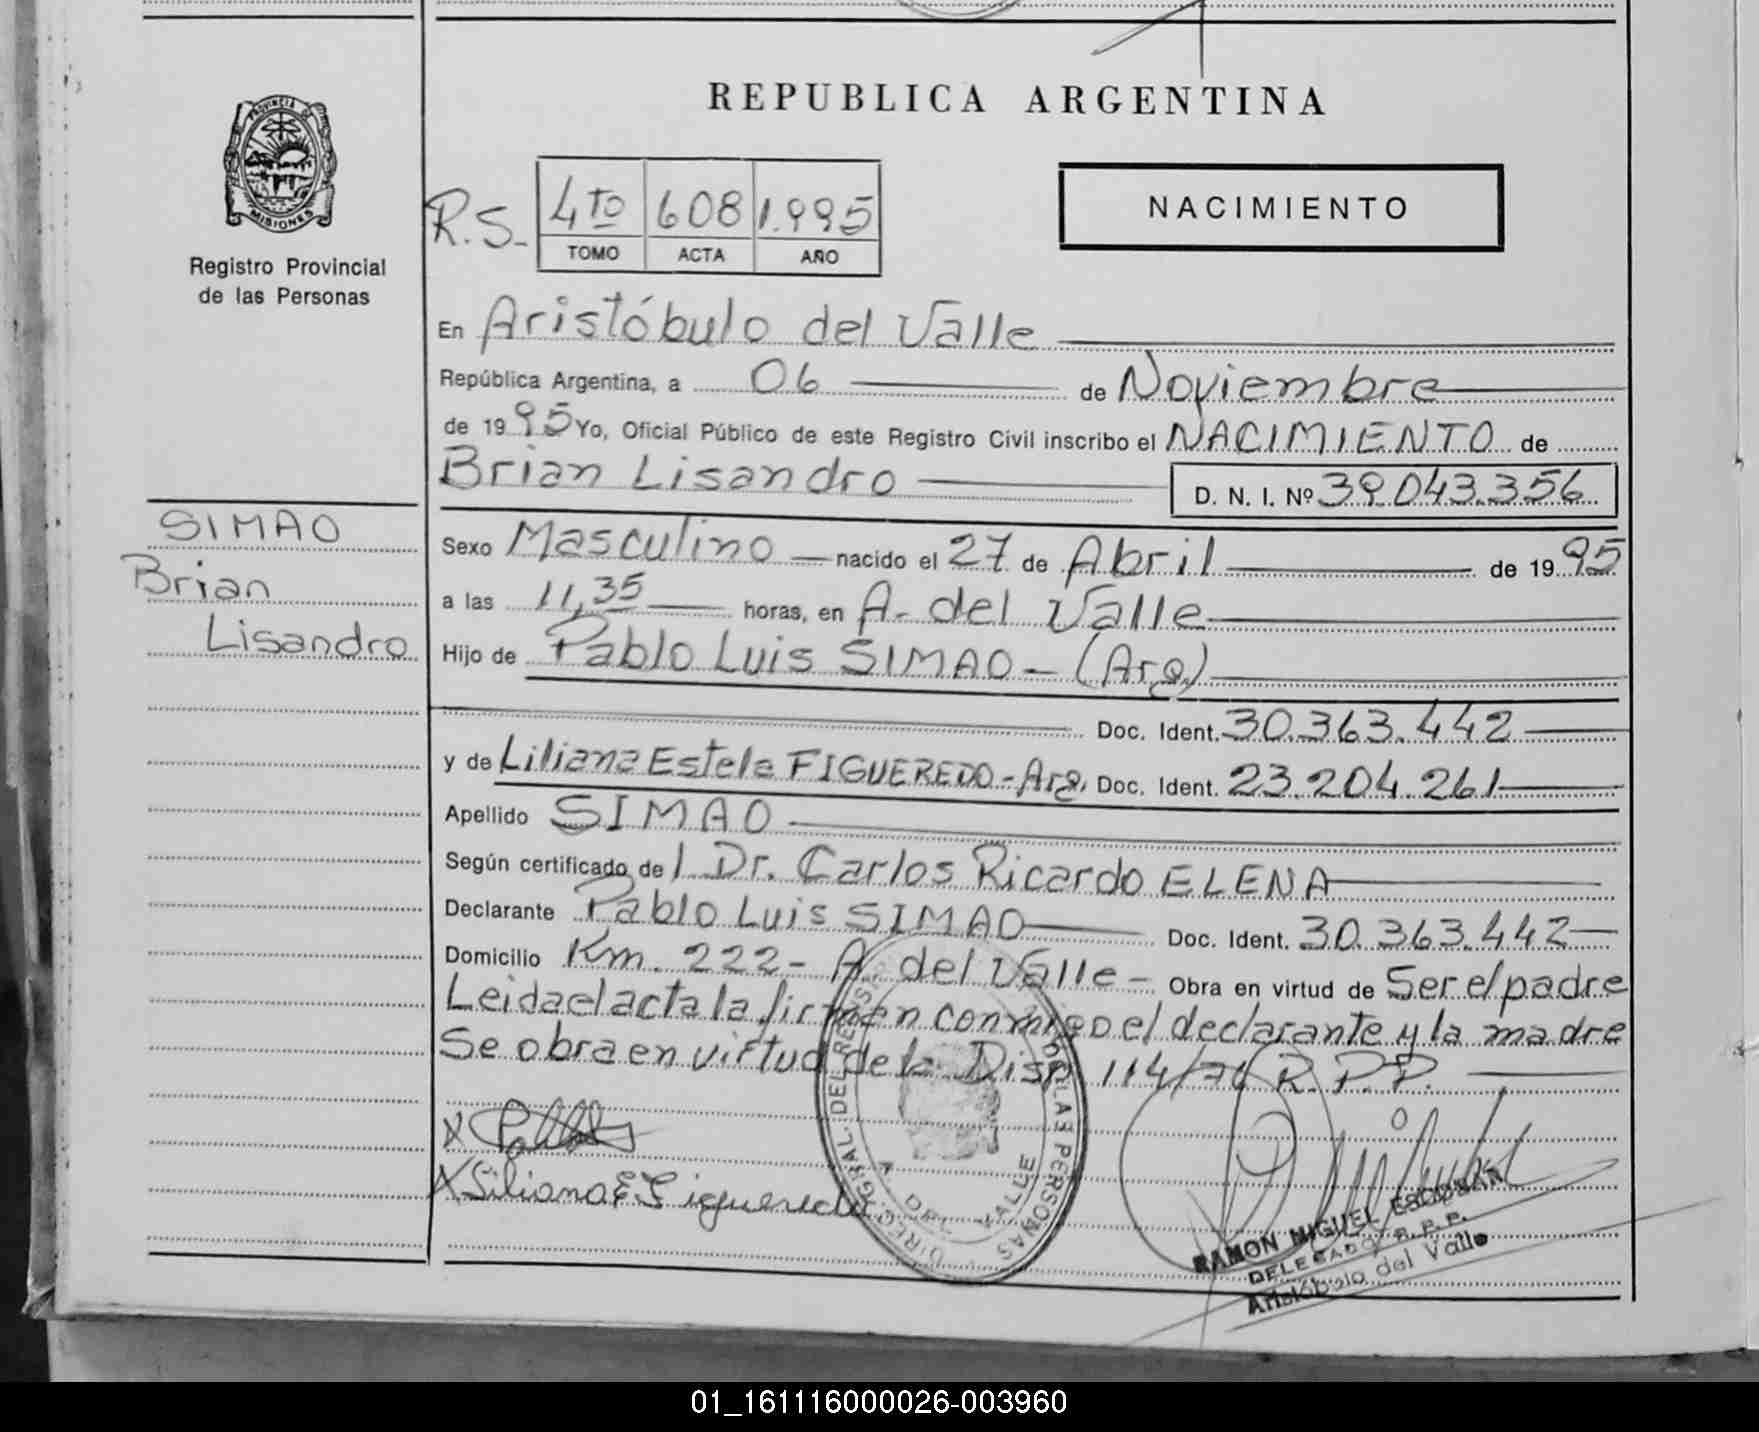 REPUBLICA ARGENTINA
PROVINCIA DE
MISIONES
Registro Provincial
de las Personas
R.S. 4to 608 1.995
TOMO ACTA AÑO
NACIMIENTO
En Aristóbulo del Valle
República Argentina, a 06 de Noviembre
de 1995 Yo, Oficial Público de este Registro Civil inscribo el NACIMIENTO de
Brian Lisandro D. N. I. Nº 39.043.356
SIMAO
Brian
Lisandro
Sexo Masculino nacido el 27 de Abril de 1995
a las 11,35 horas, en A. del Valle
Hijo de Pablo Luis SIMAO - (Arg)
Doc. Ident. 30.363.442
y de Liliana Estela FIGUEREDO - Arg. Doc. Ident. 23.204.261
Apellido SIMAO
Según certificado de l Dr. Carlos Ricardo ELENA
Declarante Pablo Luis SIMAO Doc. Ident. 30.363.442
Domicilio Km. 222 - A del Valle - Obra en virtud de Ser el padre
Leida el acta la firman conmigo el declarante y la madre
Se obra en virtud de la Disp. 114/ R.P.P.
X
X Liliana E. Figueredo
DIREC. GRAL. DEL REG. DE LAS PERSONAS
A. DEL VALLE
RAMON MIGUEL ESCOBAR
DELEGADO R. P. P.
Aristóbulo del Valle
01_161116000026-003960